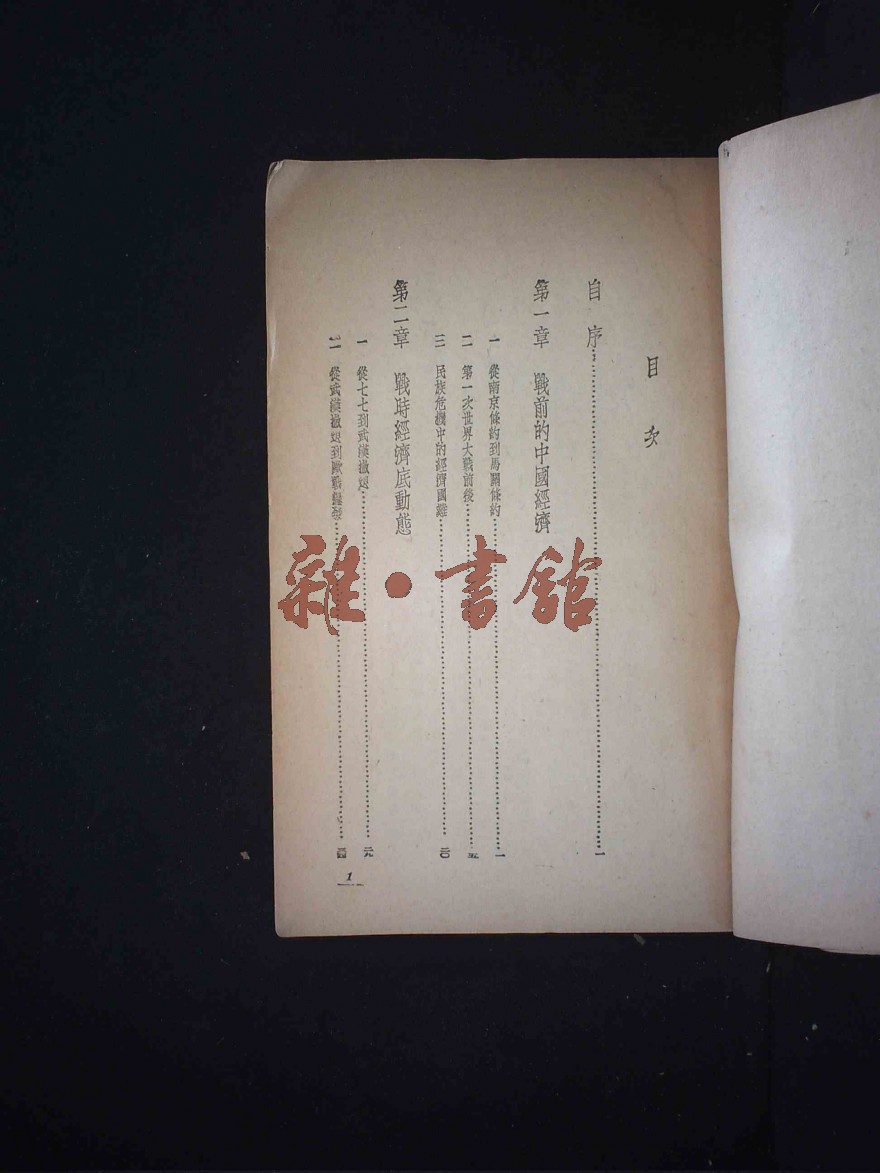 目次
自序……一
第一章 戰前的中國經濟
一 從南京條約到馬關條約……一
二 第一次世界大戰前後……五
三 民族危機中的經濟國難……二〇
第二章 戰時經濟底動態
一 從七七到武漢撤退……二九
二 從武漢撤退到歐戰爆發……
1
雜·書館